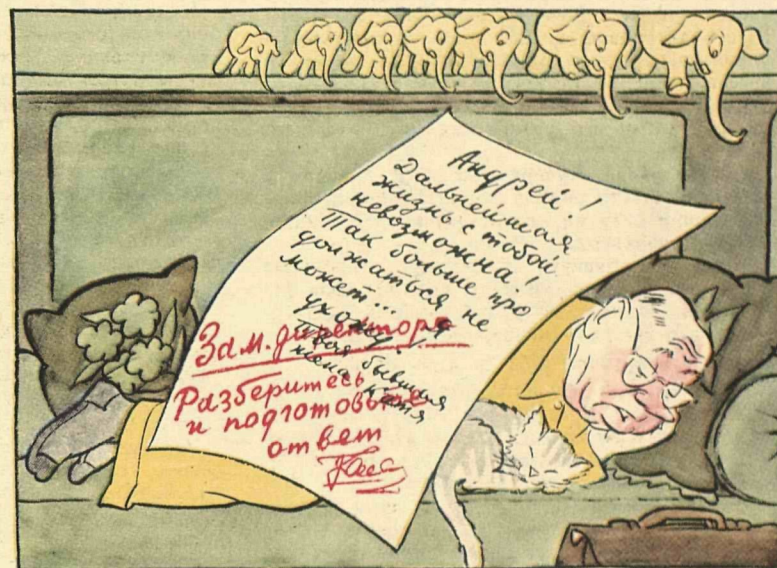 Андрей!
Дальнейшая
жизнь с тобой
невозможна!
Так больше про
должаться не
может...
ухожу! я
Твоя бывшая
жена Катя
Зам. директора
Разберитесь
и подготовьте
ответ